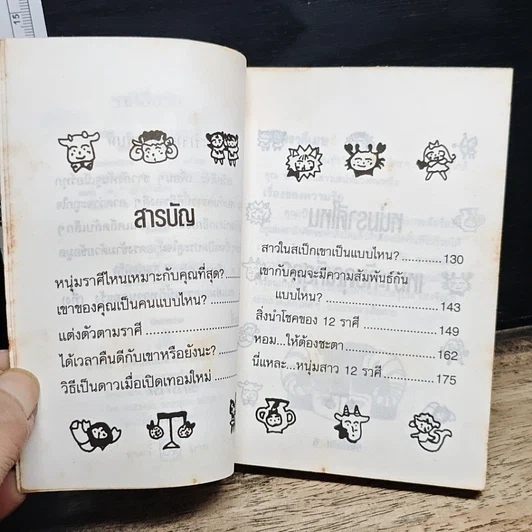 สารบัญ
หนุ่มราศีไหนเหมาะกับคุณที่สุด?
เขาของคุณเป็นคนแบบไหน?
แต่งตัวตามราศี
ได้เวลาคืนดีกับเขาหรือยังนะ?
วิธีเป็นดาวเมื่อเปิดเทอมใหม่
สาวในสเป็กเขาเป็นแบบไหน? 130
เขากับคุณจะมีความสัมพันธ์กัน
แบบไหน? 143
สิ่งนำโชคของ 12 ราศี 149
หอม...ให้ต้องชะตา 162
นี่แหละ...หนุ่มสาว 12 ราศี 175
15